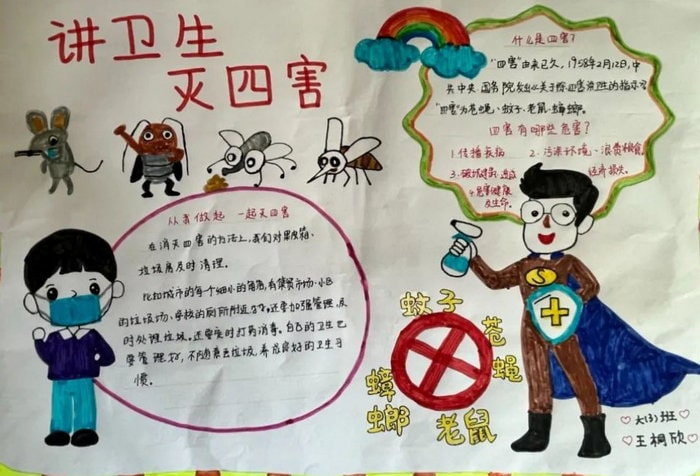 讲卫生
灭四害
什么是四害?
"四害"由来已久,1958年2月12日,中
共中央 国务院发出《关于除四害讲卫生的指示》
"四害"为苍蝇、蚊子、老鼠、蟑螂。
四害有哪些危害?
1.传播疾病
2.污染环境、浪费粮食
3.破坏建筑 造成
经济损失。
4.危害健康
及生命。
从我做起 一起灭四害
在消灭四害的方法上,我们对果皮箱、
垃圾房及时清理。
比如城市的每个细小的角落,有菜贸市场、小区
的垃圾场、学校的厕所附近
还要加强管理,及
时处理垃圾。还要实时打药消毒。自己的卫生也
要管理好,不随意丢垃圾,养成良好的卫生习
惯。
S
蚊子
苍蝇
蟑螂
老鼠
大(3)班
王桐欣